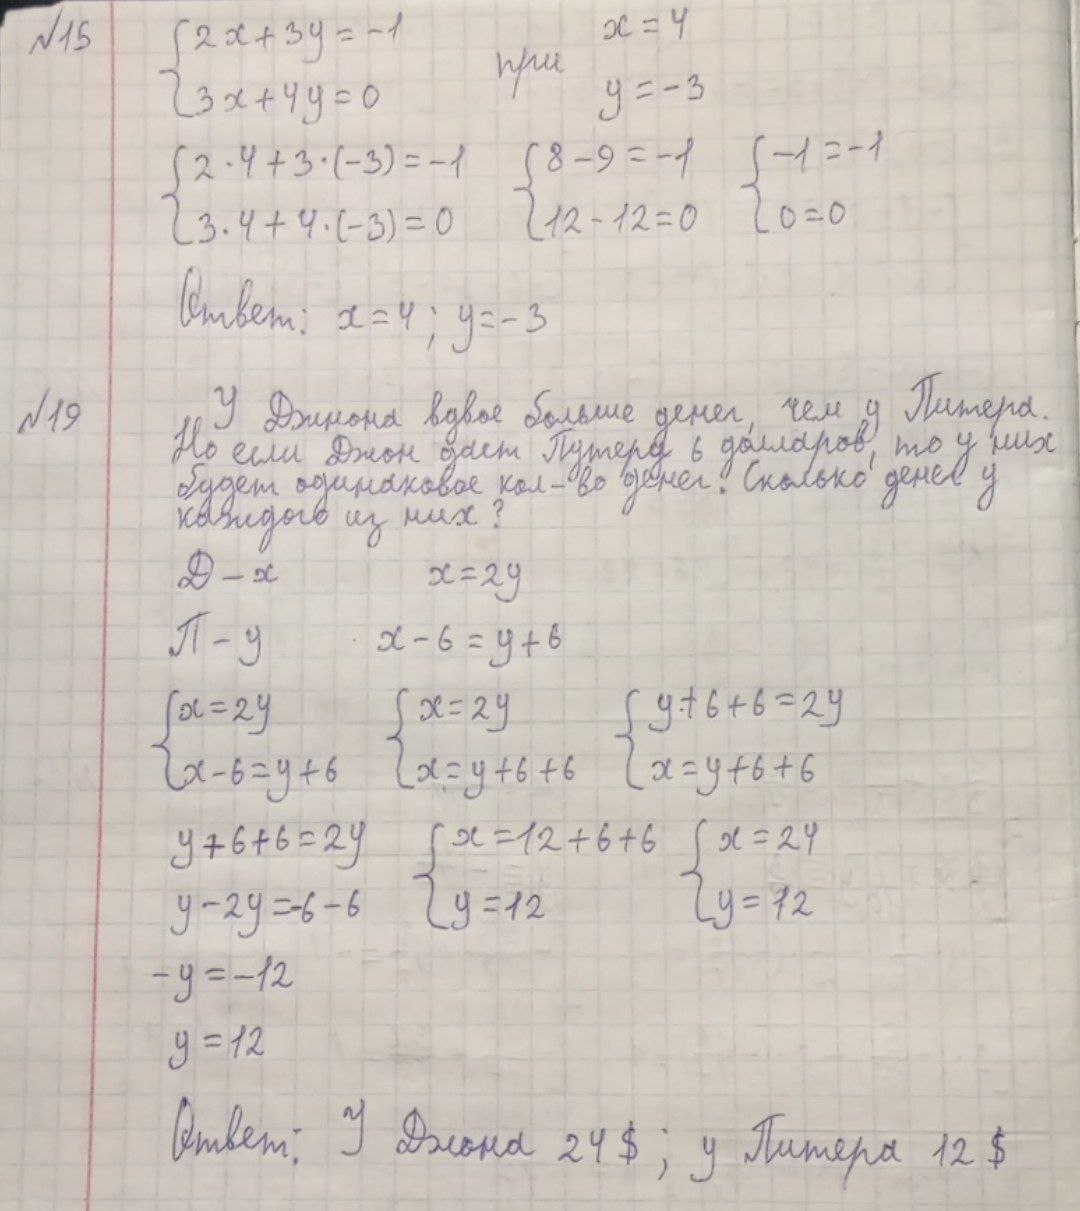 №15 {2x+3y=-1 при x=4
{3x+4y=0 y=-3
{2·4+3·(-3)=-1 {8-9=-1 {-1=-1
{3·4+4·(-3)=0 {12-12=0 {0=0
Ответ: x=4; y=-3
№19 У Джнона вдвое больше денег, чем у Питера.
Но если Джон даст Путеру 6 долларов, то у них
будет одинаковое кол-во денег. Сколько денег у
каждого из них?
Д - x x=2y
П - y x-6=y+6
{x=2y {x=2y {y+6+6=2y
{x-6=y+6 {x=y+6+6 {x=y+6+6
y+6+6=2y {x=12+6+6 {x=24
y-2y=-6-6 {y=12 {y=12
-y=-12
y=12
Ответ: У Джона 24$; у Питера 12$